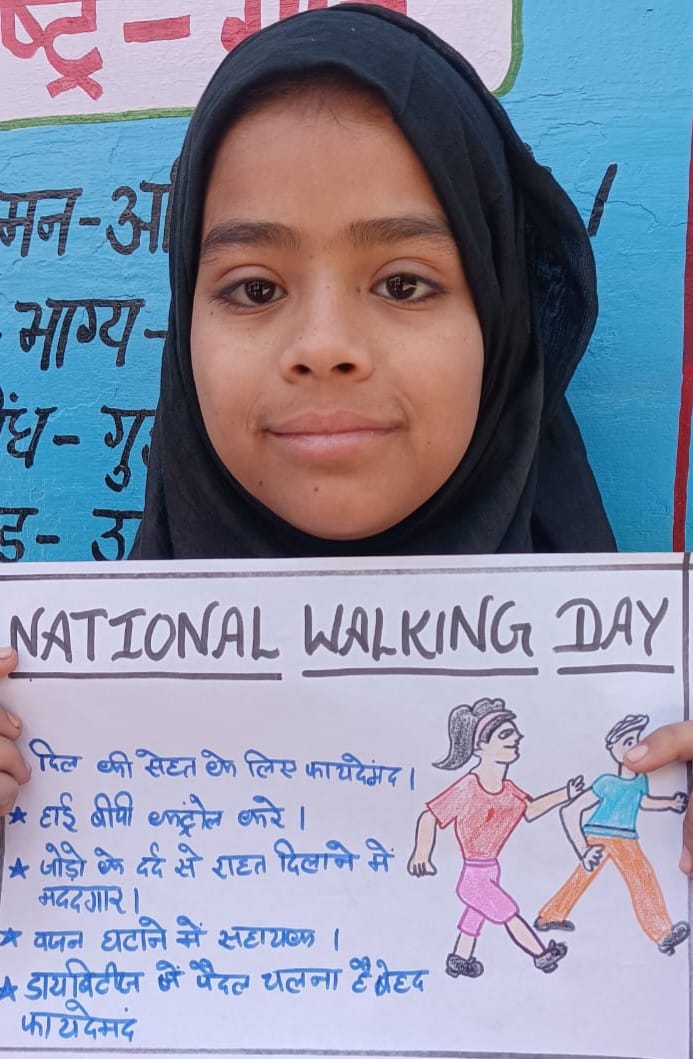 ष्ट्र - गान
मन-अ
भाग्य -
ध - गु
ड - उ
NATIONAL WALKING DAY
दिल की सेहत के लिए फायदेमंद।
★ हाई बीपी कंट्रोल करे।
★ जोड़ो के दर्द से राहत दिलाने में
मददगार।
★ वजन घटाने में सहायक।
★ डायबिटीज में पैदल चलना है बेहद
फायदेमदं